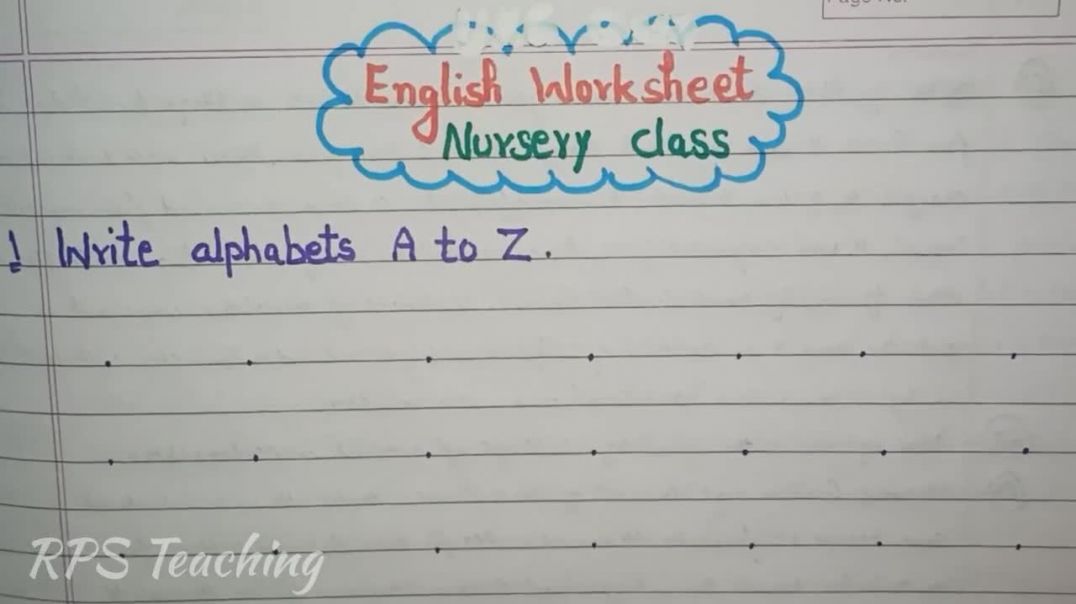 English Worksheet
Nursery class
1 Write alphabets A to Z.
RPS Teaching